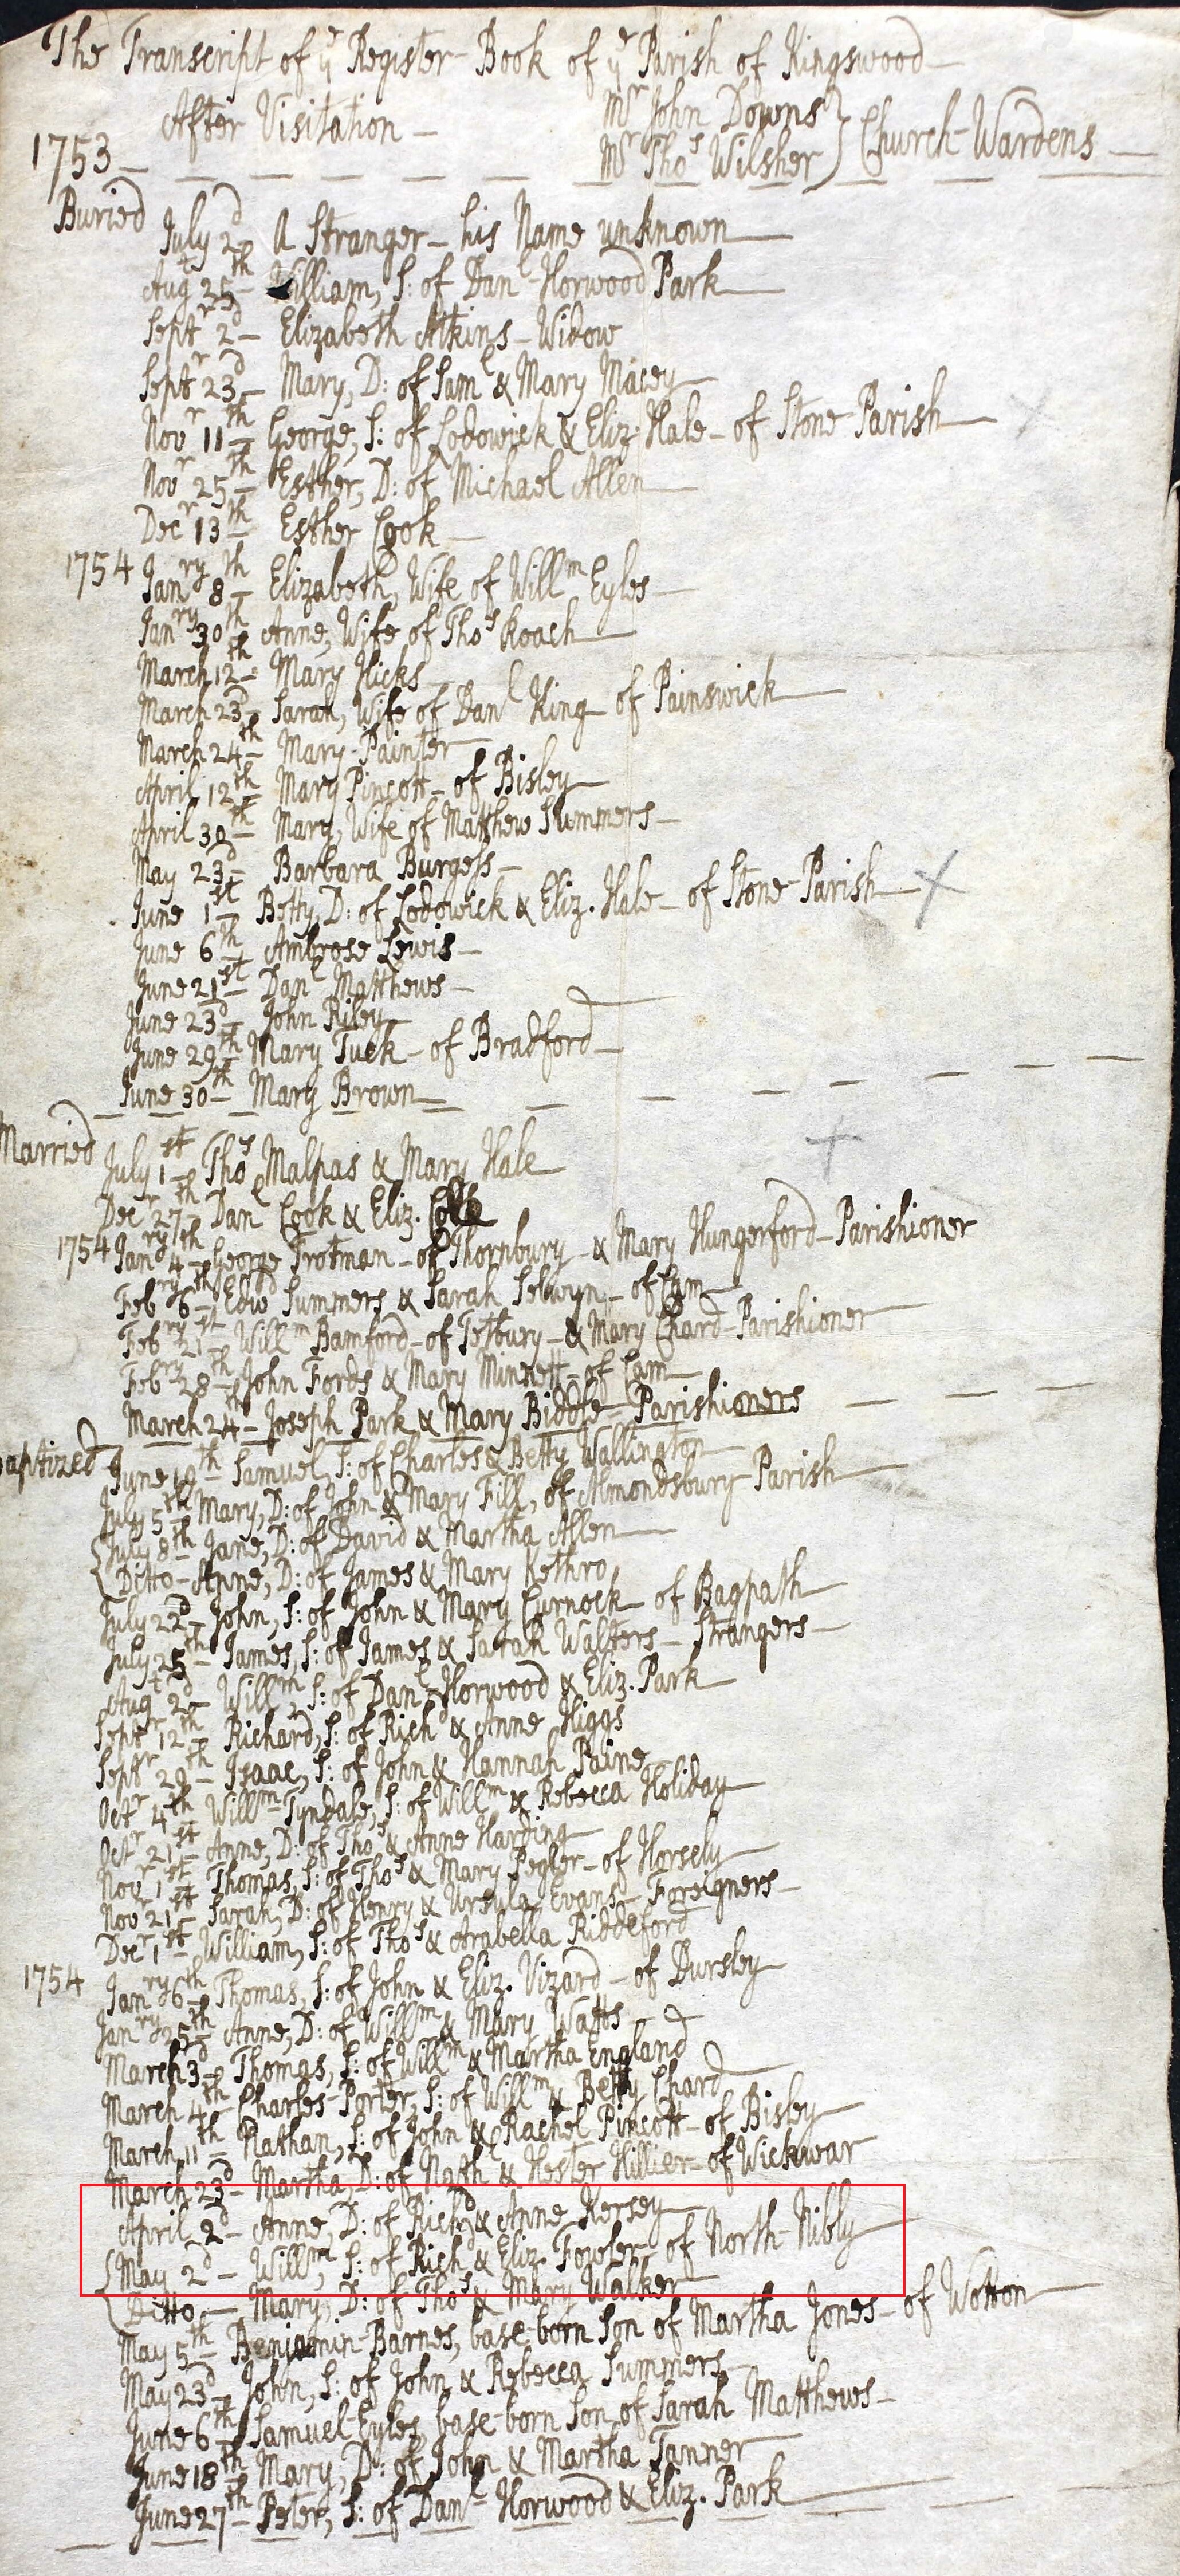 The Transcript of yᵉ Register Book of yᵉ Parish of Kingswood
After Visitation — Mʳ John Downs
1753 — Mʳ Thoˢ Wilsher } Church-Wardens
Buried July 2ᵈ A Stranger — his Name unknown
Augᵗ 25ᵗʰ William, S: of Danˡ Horwood Park
Septʳ 2ᵈ — Elizabeth Atkins — Widow
Septʳ 23ᵈ — Mary, D: of Samˡ & Mary Macey
Novʳ 11ᵗʰ — George, S: of Lodowick & Eliz. Hale — of Stone Parish
Novʳ 25ᵗʰ — Esther, D: of Michael Allen
Decʳ 13ᵗʰ Esther Cook —
1754 Janʳʸ 8ᵗʰ — Elizabeth, Wife of Willᵐ Eyles —
Janʳʸ 30ᵗʰ Anne, Wife of Thoˢ Roach
March 12ᵗʰ — Mary Hicks
March 23ᵈ — Sarah, Wife of Danˡ King — of Painswick
March 24ᵗʰ — Mary Painter
April 12ᵗʰ — Mary Pincott — of Bisley
April 30ᵗʰ — Mary, Wife of Matthew Summers —
May 23ᵈ — Barbara Burgess —
June 1ˢᵗ — Betty, D: of Lodowick & Eliz. Hale — of Stone Parish
June 6ᵗʰ — Ambrose Lewis —
June 21ˢᵗ — Danˡ Matthews —
June 23ᵈ — John Riley
June 29ᵗʰ — Mary Tuck — of Bradford —
June 30ᵗʰ — Mary Brown —
Married July 1ˢᵗ — Thoˢ Malpas & Mary Hale
Decʳ 27ᵗʰ — Danˡ Cook & Eliz.
1754 Janʳʸ 4ᵗʰ — George Trotman — of Thornbury — & Mary Hungerford — Parishioner
Febʳʸ 6ᵗʰ — Edwᵈ Summers & Sarah Selwyn — of Cam —
Febʳʸ 21ˢᵗ — Willᵐ Bamford — of Tetbury — & Mary Chard — Parishioner
Febʳʸ 28ᵗʰ — John Fords & Mary Minnett — of Cam —
March 24ᵗʰ — Joseph Park & Mary Biddle — Parishioners
aptized June 19ᵗʰ Samuel, S: of Charles & Betty Wallington
July 5ᵗʰ — Mary, D: of John & Mary Fill, of Almondsbury Parish
{ July 8ᵗʰ — Jane, D: of David & Martha Allen
{ Ditto — Anne, D: of James & Mary Kethro
July 22ᵈ — John, S: of John & Mary Curnock — of Bagpath
July 25ᵗʰ — James, S: of James & Sarah Walters — Strangers —
Augᵗ 2ᵈ — Willᵐ, S: of Danˡ Horwood & Eliz. Park
Septʳ 12ᵗʰ — Richard, S: of Richᵈ & Anne Higgs
Septʳ 29ᵗʰ — Isaac, S: of John & Hannah Paine
Octʳ 4ᵗʰ Willᵐ Tyndale, S: of Willᵐ & Rebecca Holiday
Octʳ 21ˢᵗ — Anne, D: of Thoˢ & Anne Harding
Novʳ 1ˢᵗ — Thomas, S: of Thoˢ & Mary Pegler — of Horsely
Novʳ 21ˢᵗ — Sarah, D: of Henry & Ursula Evans — Foreigners —
Decʳ 1ˢᵗ — William, S: of Thoˢ & Arabella Riddeford
1754 Janʳʸ 6ᵗʰ — Thomas, S: of John & Eliz. Vizard — of Dursley
Janʳʸ 25ᵗʰ — Anne, D: of Willᵐ & Mary Watts —
March 3ᵈ — Thomas, S: of Willᵐ & Martha England
March 4ᵗʰ — Charles-Porter, S: of Willᵐ & Betty Chard
March 11ᵗʰ — Nathan, S: of John & Rachel Pincott — of Bisley
March 23ᵈ — Martha, D: of Nathˡ & Hester Hillier — of Wickwar
April 2ᵈ — Anne, D: of Richᵈ & Anne Kersey
{ May 2ᵈ — Willᵐ, S: of Richᵈ & Eliz. Fowler — of North-Nibly
{ Ditto — Mary, D: of Thoˢ & Mary Walker
May 5ᵗʰ — Benjamin-Barnes, base-born Son of Martha Jones — of Wotton
May 23ᵈ — John, S: of John & Rebecca Summers —
June 6ᵗʰ — Samuel-Eyles, base-born Son of Sarah Matthews —
June 18ᵗʰ — Mary, D: of John & Martha Tanner
June 27ᵗʰ — Peter, S: of Danˡ Horwood & Eliz. Park